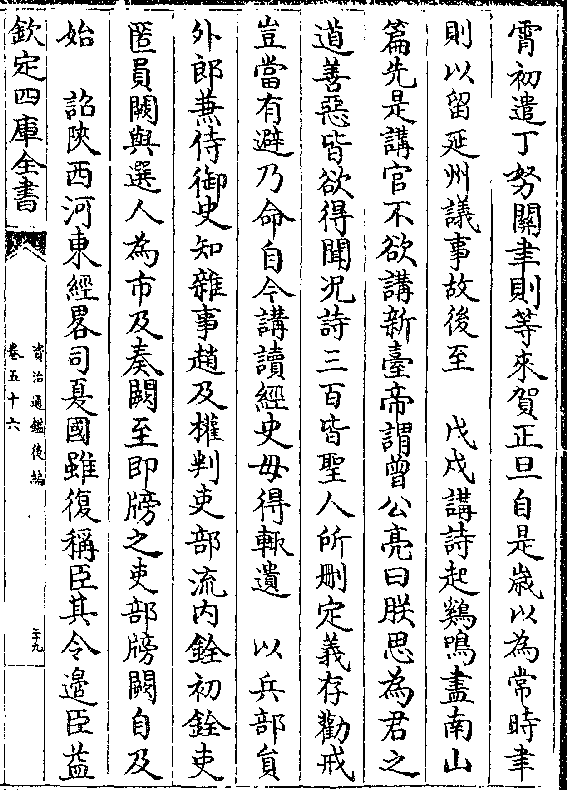 霄初遣丁努關聿則等來賀正旦自是歳以為常時聿
則以留延州議事故後至　戊戌講詩起鷄鳴盡南山
篇先是講官不欲講新臺帝謂曾公亮曰朕思為君之
道善惡皆欲得聞况詩三百皆聖人所刪定義存勸戒
豈當有避乃命自今講讀經史毋得輒遺　以兵部員
外郎兼侍御史知雜事趙及權判吏部流内銓初銓吏
匿員闕與選人為市及奏闕至即牓之吏部牓闕自及
始　詔陜西河東經畧司夏國雖復稱臣其令邊臣益
欽定四庫全書
資治通鑑後編
卷五十六
二十九